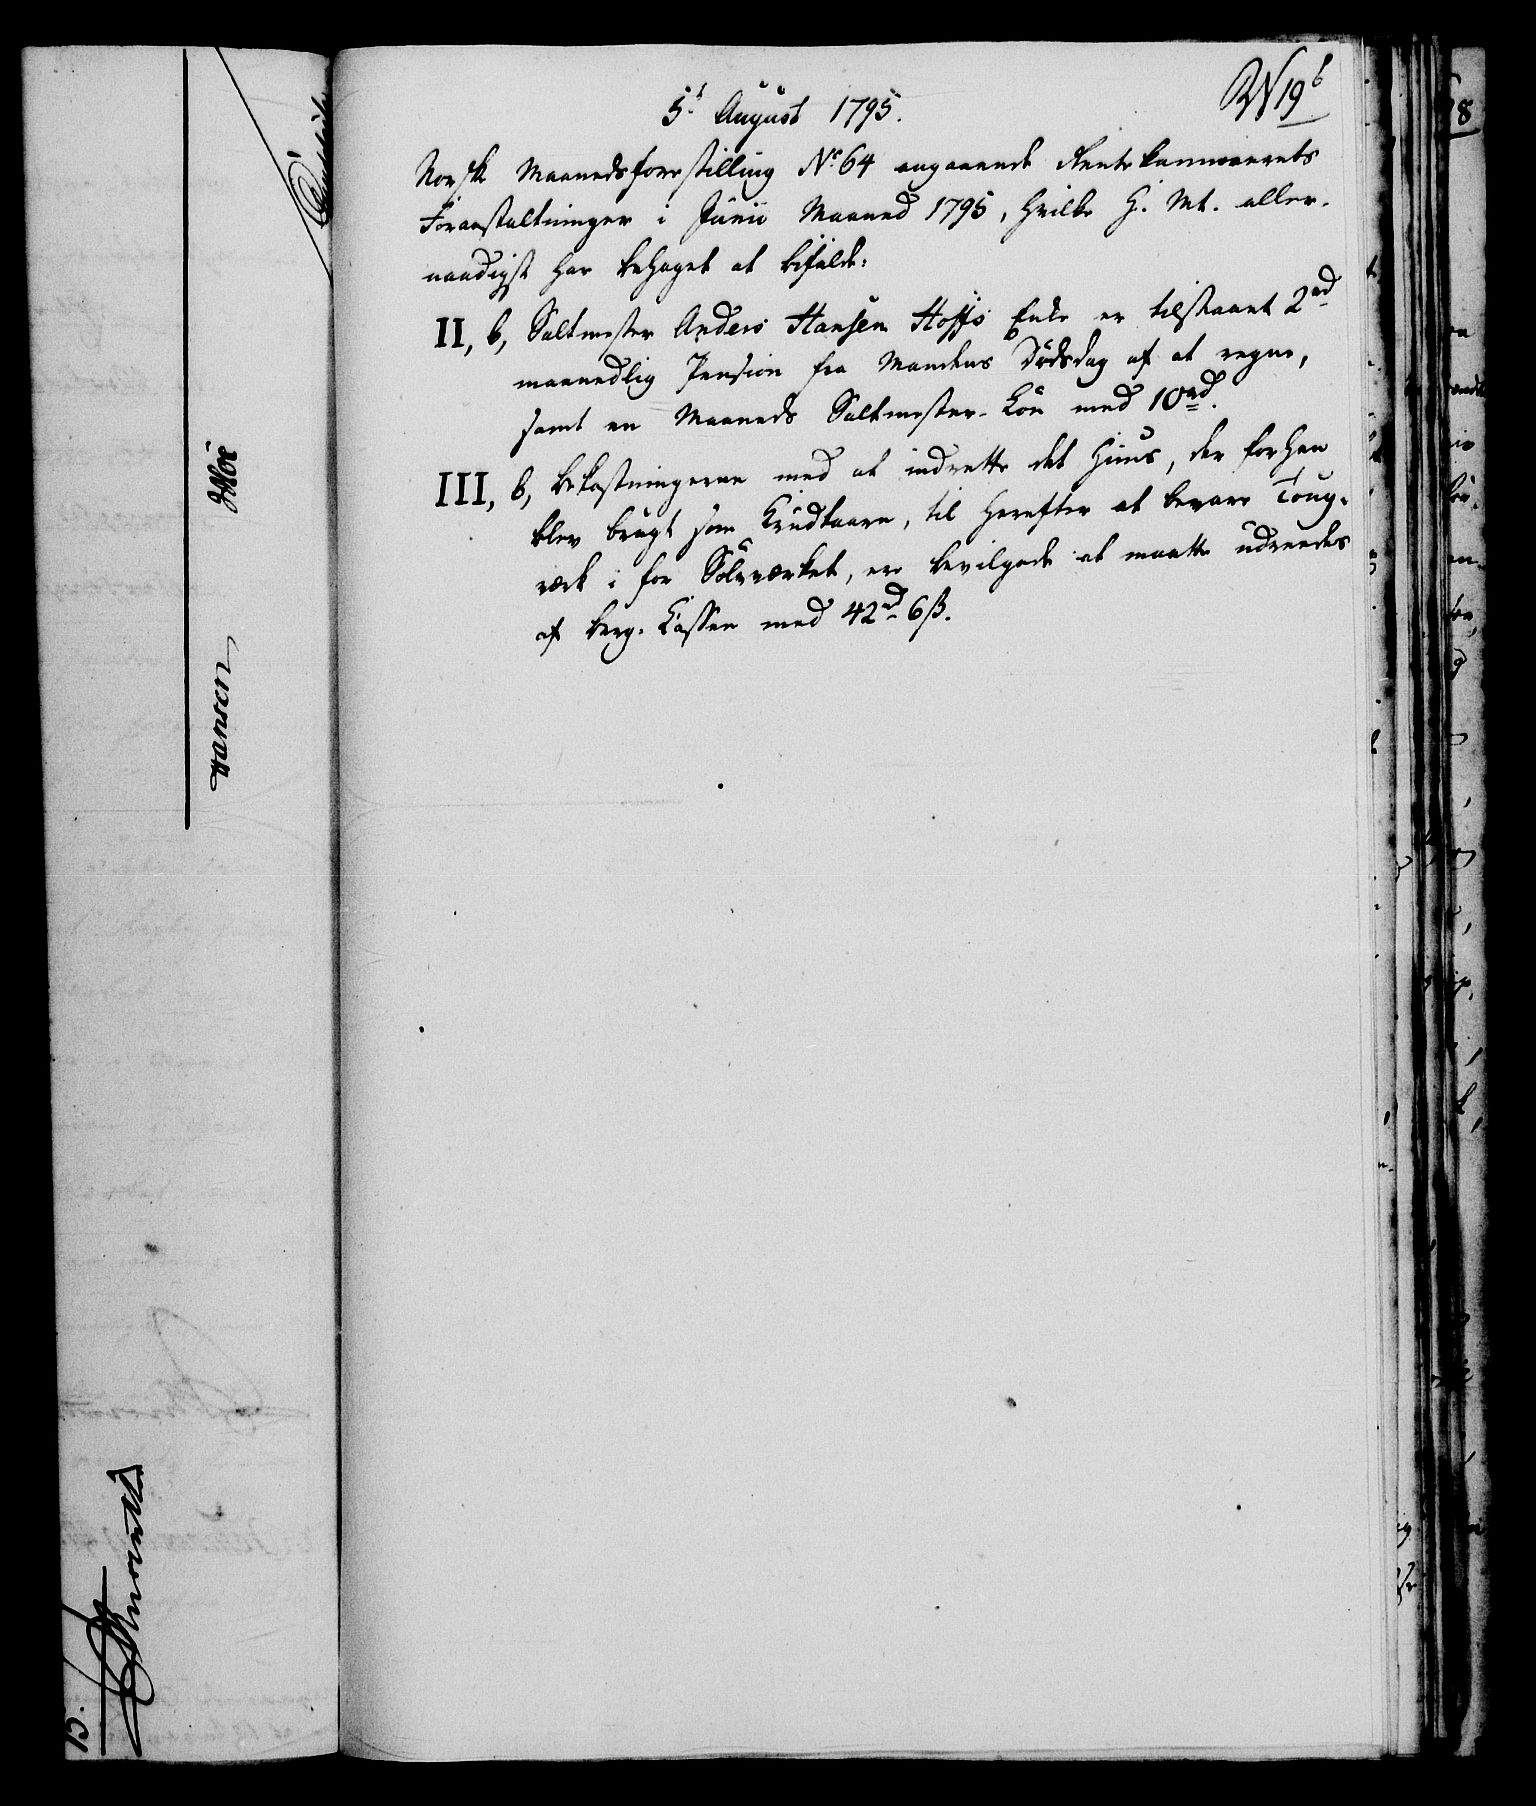 RN 19b
5t August 1795.
Norsk Maanedsforestilling No 64 angaaende Rentekammerets
Foranstaltninger i Junii Maaned 1795, hvilke H. Mt. aller-
naadigst har behaget at bifalde:
II, 6, Saltmester Anders Hansen Hoffs Enke er tilstaaet 2rd
maanedlig Pension fra Mandens Dødsdag af at regne,
samt en Maaneds Saltmester-Løn med 10rd.
III, 6, Bekostningerne med at indrette det Huus, der forhen
blev brugt som Krudtaarn, til herefter at bevare Toug-
værk i for Sølvværket, ere bevilgede at maatte udreedes
af Berg-Cassen med 42rd 6ß.
Hansen
Hoë